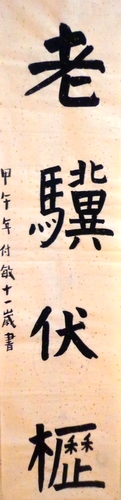 老驥伏櫪
甲午年付敏十一歲書